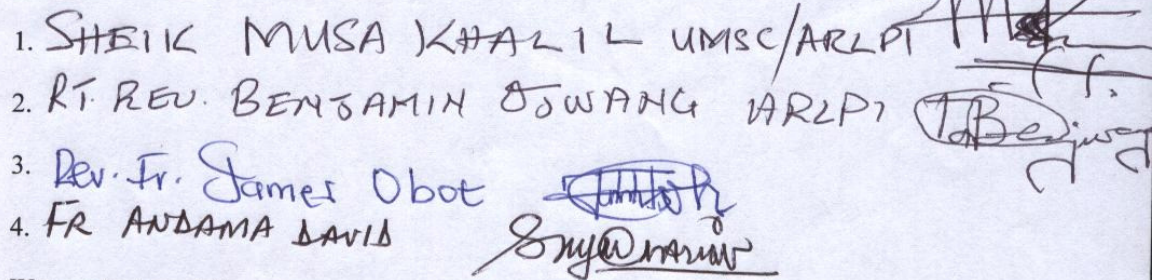 1. SHEIK MUSA KHALIL UMSC/ARLPI
2. RT. REV. BENJAMIN OJWANG ARLPI
3. Rev. Fr. James Obot
4. FR ANDAMA DAVID